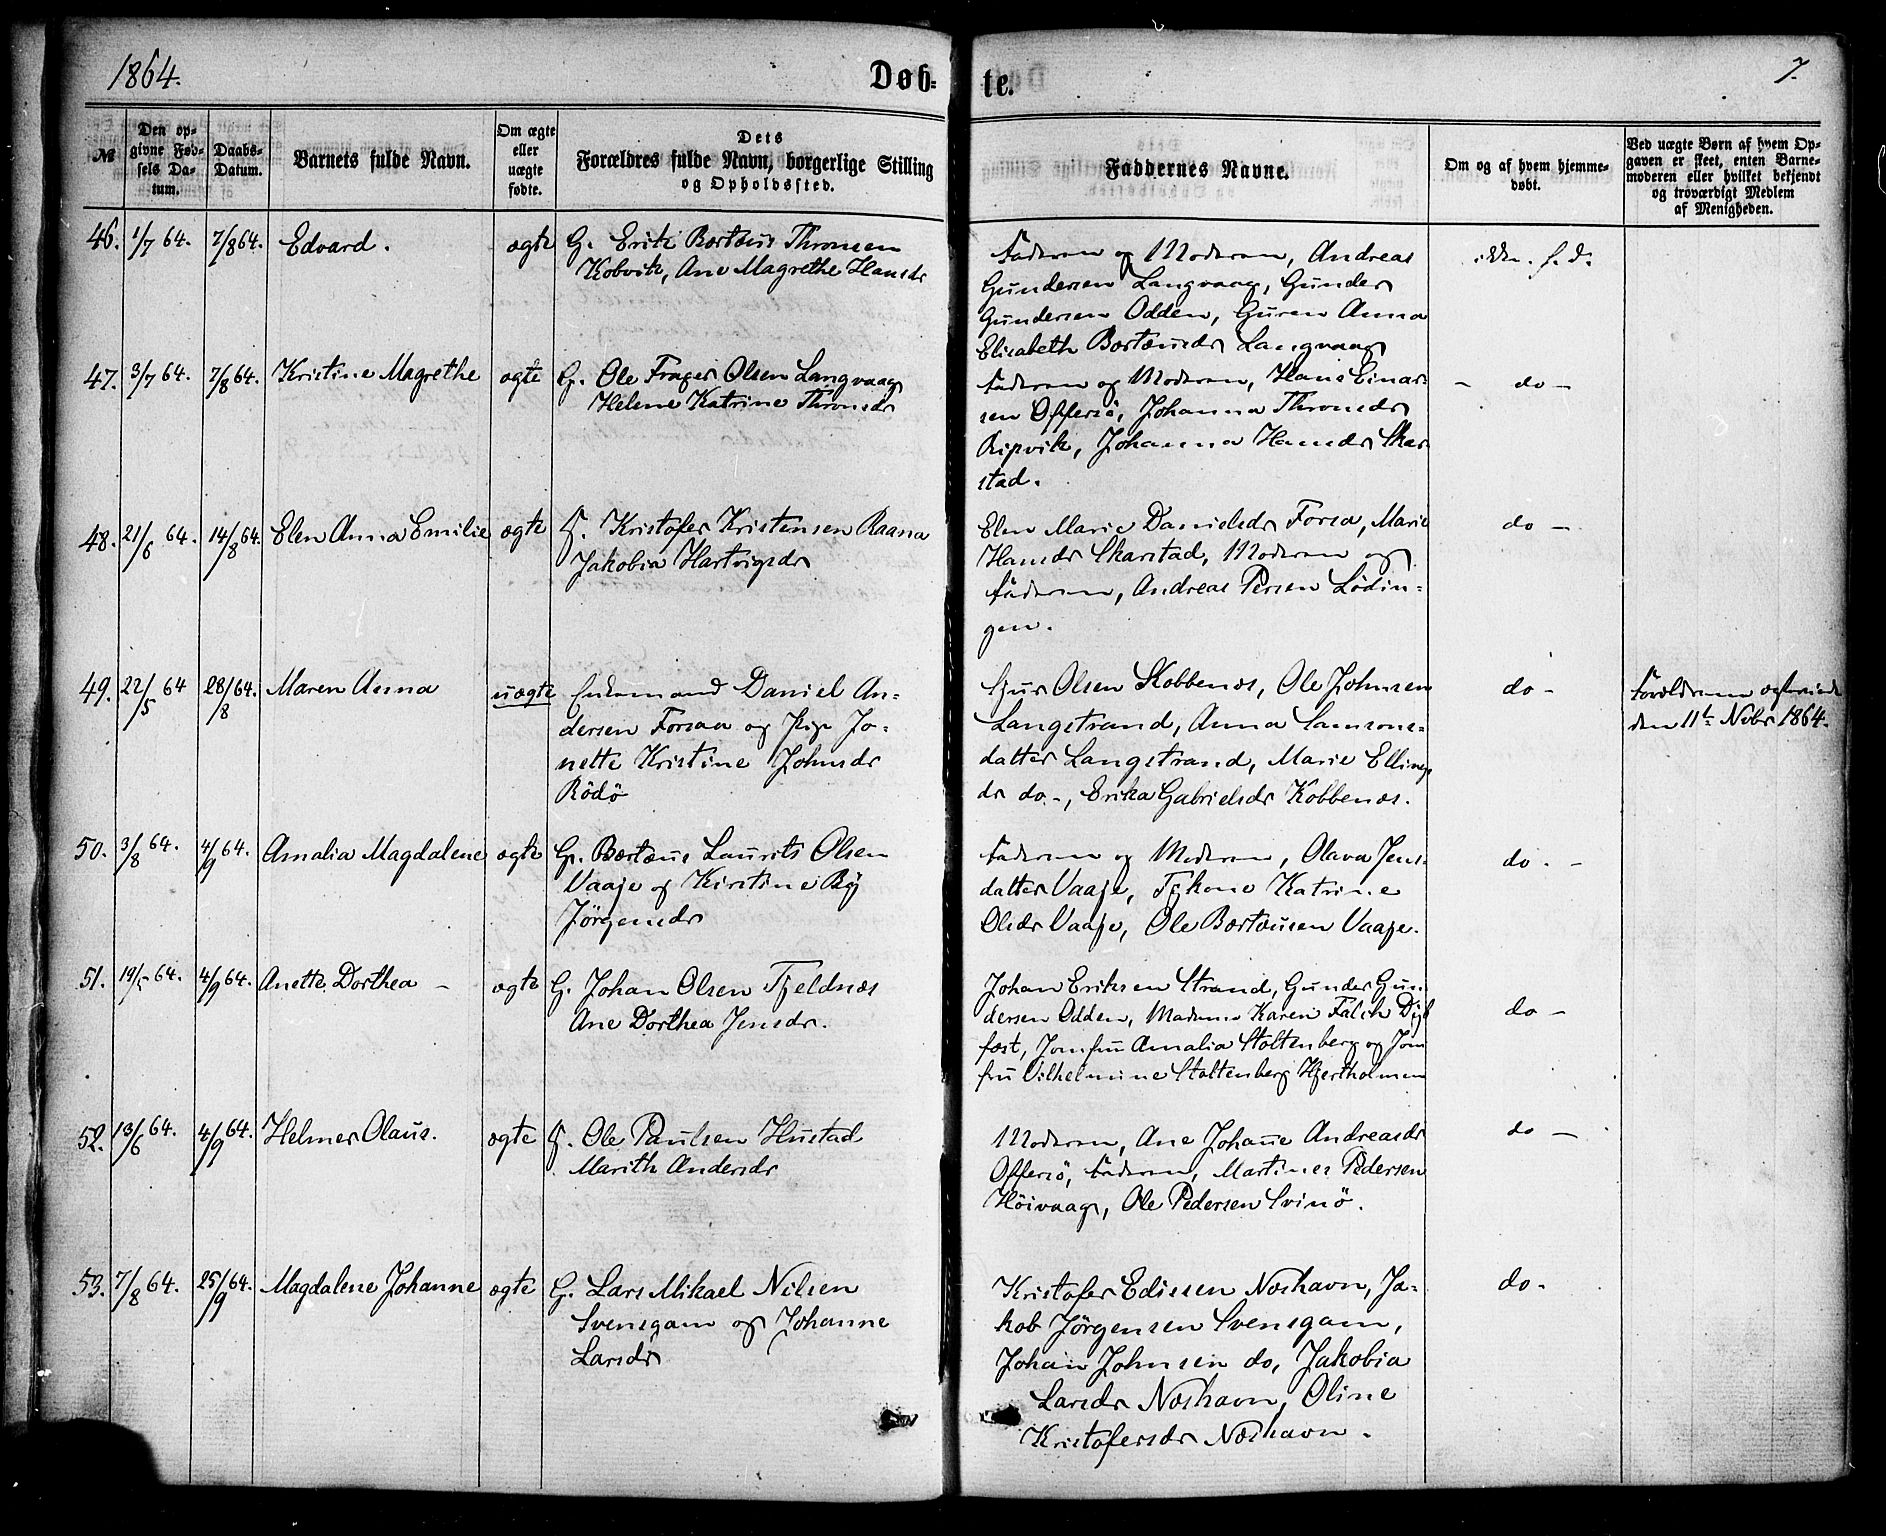 1864.
Døb-
te.
7.
№
Den op-
givne Fød-
sels Da-
tum.
Daabs-
Datum.
Barnets fulde Navn.
Om ægte
eller
uægte
fødte.
Dets
Forældres fulde Navn, borgerlige Stilling
og Opholdssted.
Faddernes Navne.
Om og af hvem hjemme-
døbt.
Ved uægte Børn af hvem Op-
gaven er skeet, enten Barne-
moderen eller hvilket bekjendt
og troværdigt Medlem
af Menigheden.
46. 1/7 64. 7/8 64. Edvard. ægte G. Erik Bærtæus Thronsen
Kobvik, Ane Magrethe Hansdr
Faderen og Moderen, Andreas
Gundersen Langvaag, Gunder
Gundersen Odden, Guren Anna
Elisabeth Bærtæusdr Langvaag
ikke. f. d.
47. 3/7 64. 7/8 64. Kristine Magrethe ægte G. Ole Olsen Langvaag
Helene Katrine Thronsdr
Faderen og Moderen, Hans Einar-
sen Offersö, Johanna Thronsdr
Ripvik, Johanna Hansdr Skar-
stad.
- do -
48. 21/6 64. 14/8 64. Elen Anna Emilie ægte F. Kristofer Kristensen Raana
Jakobia Hartvigsdr
Elen Marie Danielsdr Forsa, Marie
Hansdr Skarstad, Moderen og
Faderen, Andreas Persen Lödin-
gen.
do -
49. 22/5 64 28/8 64. Maren Anna uægte Enkemand Daniel An-
dersen Forsaa og Pige Jo-
nette Kristine Johnsdr
Rödö
Sjur Olsen Kobbenes, Ole Johnsen
Langstrand, Anna Samsons-
datter Langstrand, Marie Ellings
dr do -, Erika Gabrielsdr Kobbenæs.
do -
Forældrene ægteviede
den 11te Novbr 1864.
50. 3/8 64. 4/9 64. Amalia Magdalene ægte G. Bærtæus Laurits Olsen
Vaaje og Kirstine Bg
Jörgensdr
Faderen og Moderen, Olava Jens-
datter Vaaje, Tjkone Katrine
Olsdr Vaaje, Ole Bærtæusen Vaaje.
do. -
51. 19/5 64. 4/9 64. Anette Dorthea - ægte G. Johan Olsen Tjeldnæs
Ane Dorthea Jensdr.
Johan Eriksen Strand, Gunder Gun
dersen Odden, Madame Karen Falch Dyb
fæst, Jomfru Amalia Stoltenberg og Jom
fru Vilhelmine Stoltenberg Hjertholmen
do -
52. 13/6 64. 4/9 64. Helmer Olaus. ægte F. Ole Paulsen Hustad
Marith Andersdr
Moderen, Ane Johanne Andreasdr
Offersö, Faderen, Martines Pedersen
Höivaag, Ole Pedersen Svinö.
do -
53. 7/8 64. 25/9 64. Magdalene Johanne ægte G. Lars Mikael Nilsen
Svensgam og Johanne
Larsdr
Kristofer Edissen Næshavn, Ja-
kob Jörgensen Svensgam,
Johan Johnsen do, Jakobia
Larsdr Næshavn, Oline
Kristofersdr Næshavn.
do -